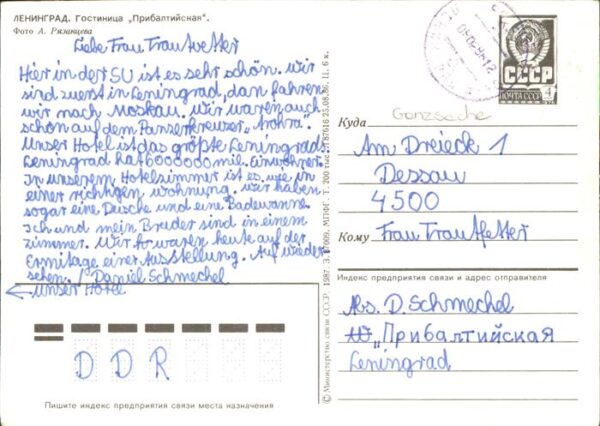 ЛЕНИНГРАД. Гостиница „Прибалтийская“.
Фото А. Рязанцева
Liebe Frau Trautvetter
Hier in der SU ist es sehr schön. Wir
sind zuerst in Leningrad, dan fahren
wir nach Moskau. Wir waren auch
schon auf dem Panserkreuzer „Arohra“.
Unser Hotel ist das größte Leningrads
Leningrad hat 6000000 mil. Einwohner.
In unserem Hotelzimmer ist es wie in
einer richtigen wohnung. wir haben
sogar eine Dusche und eine Badewanne
Ich und mein Bruder sind in einem
zimmer. Wir waren heute auf der
Ermitage einer Ausstellung. Auf wieder
sehen. / Daniel Schmechel
← unser Hotel
DDR
Пишите индекс предприятия связи места назначения
© Министерство связи СССР. 1987. З. МПФГ. Т. 200 тыс. 25.08.86. Ц. 6 к.
СССР
ПОЧТА СССР
4
Ganzsache
Куда
Am Dreieck 1
Dessau
4500
Кому Frau Trautfetter
Индекс предприятия связи и адрес отправителя
Abs. D. Schmechel
„Прибалтийская
Leningrad